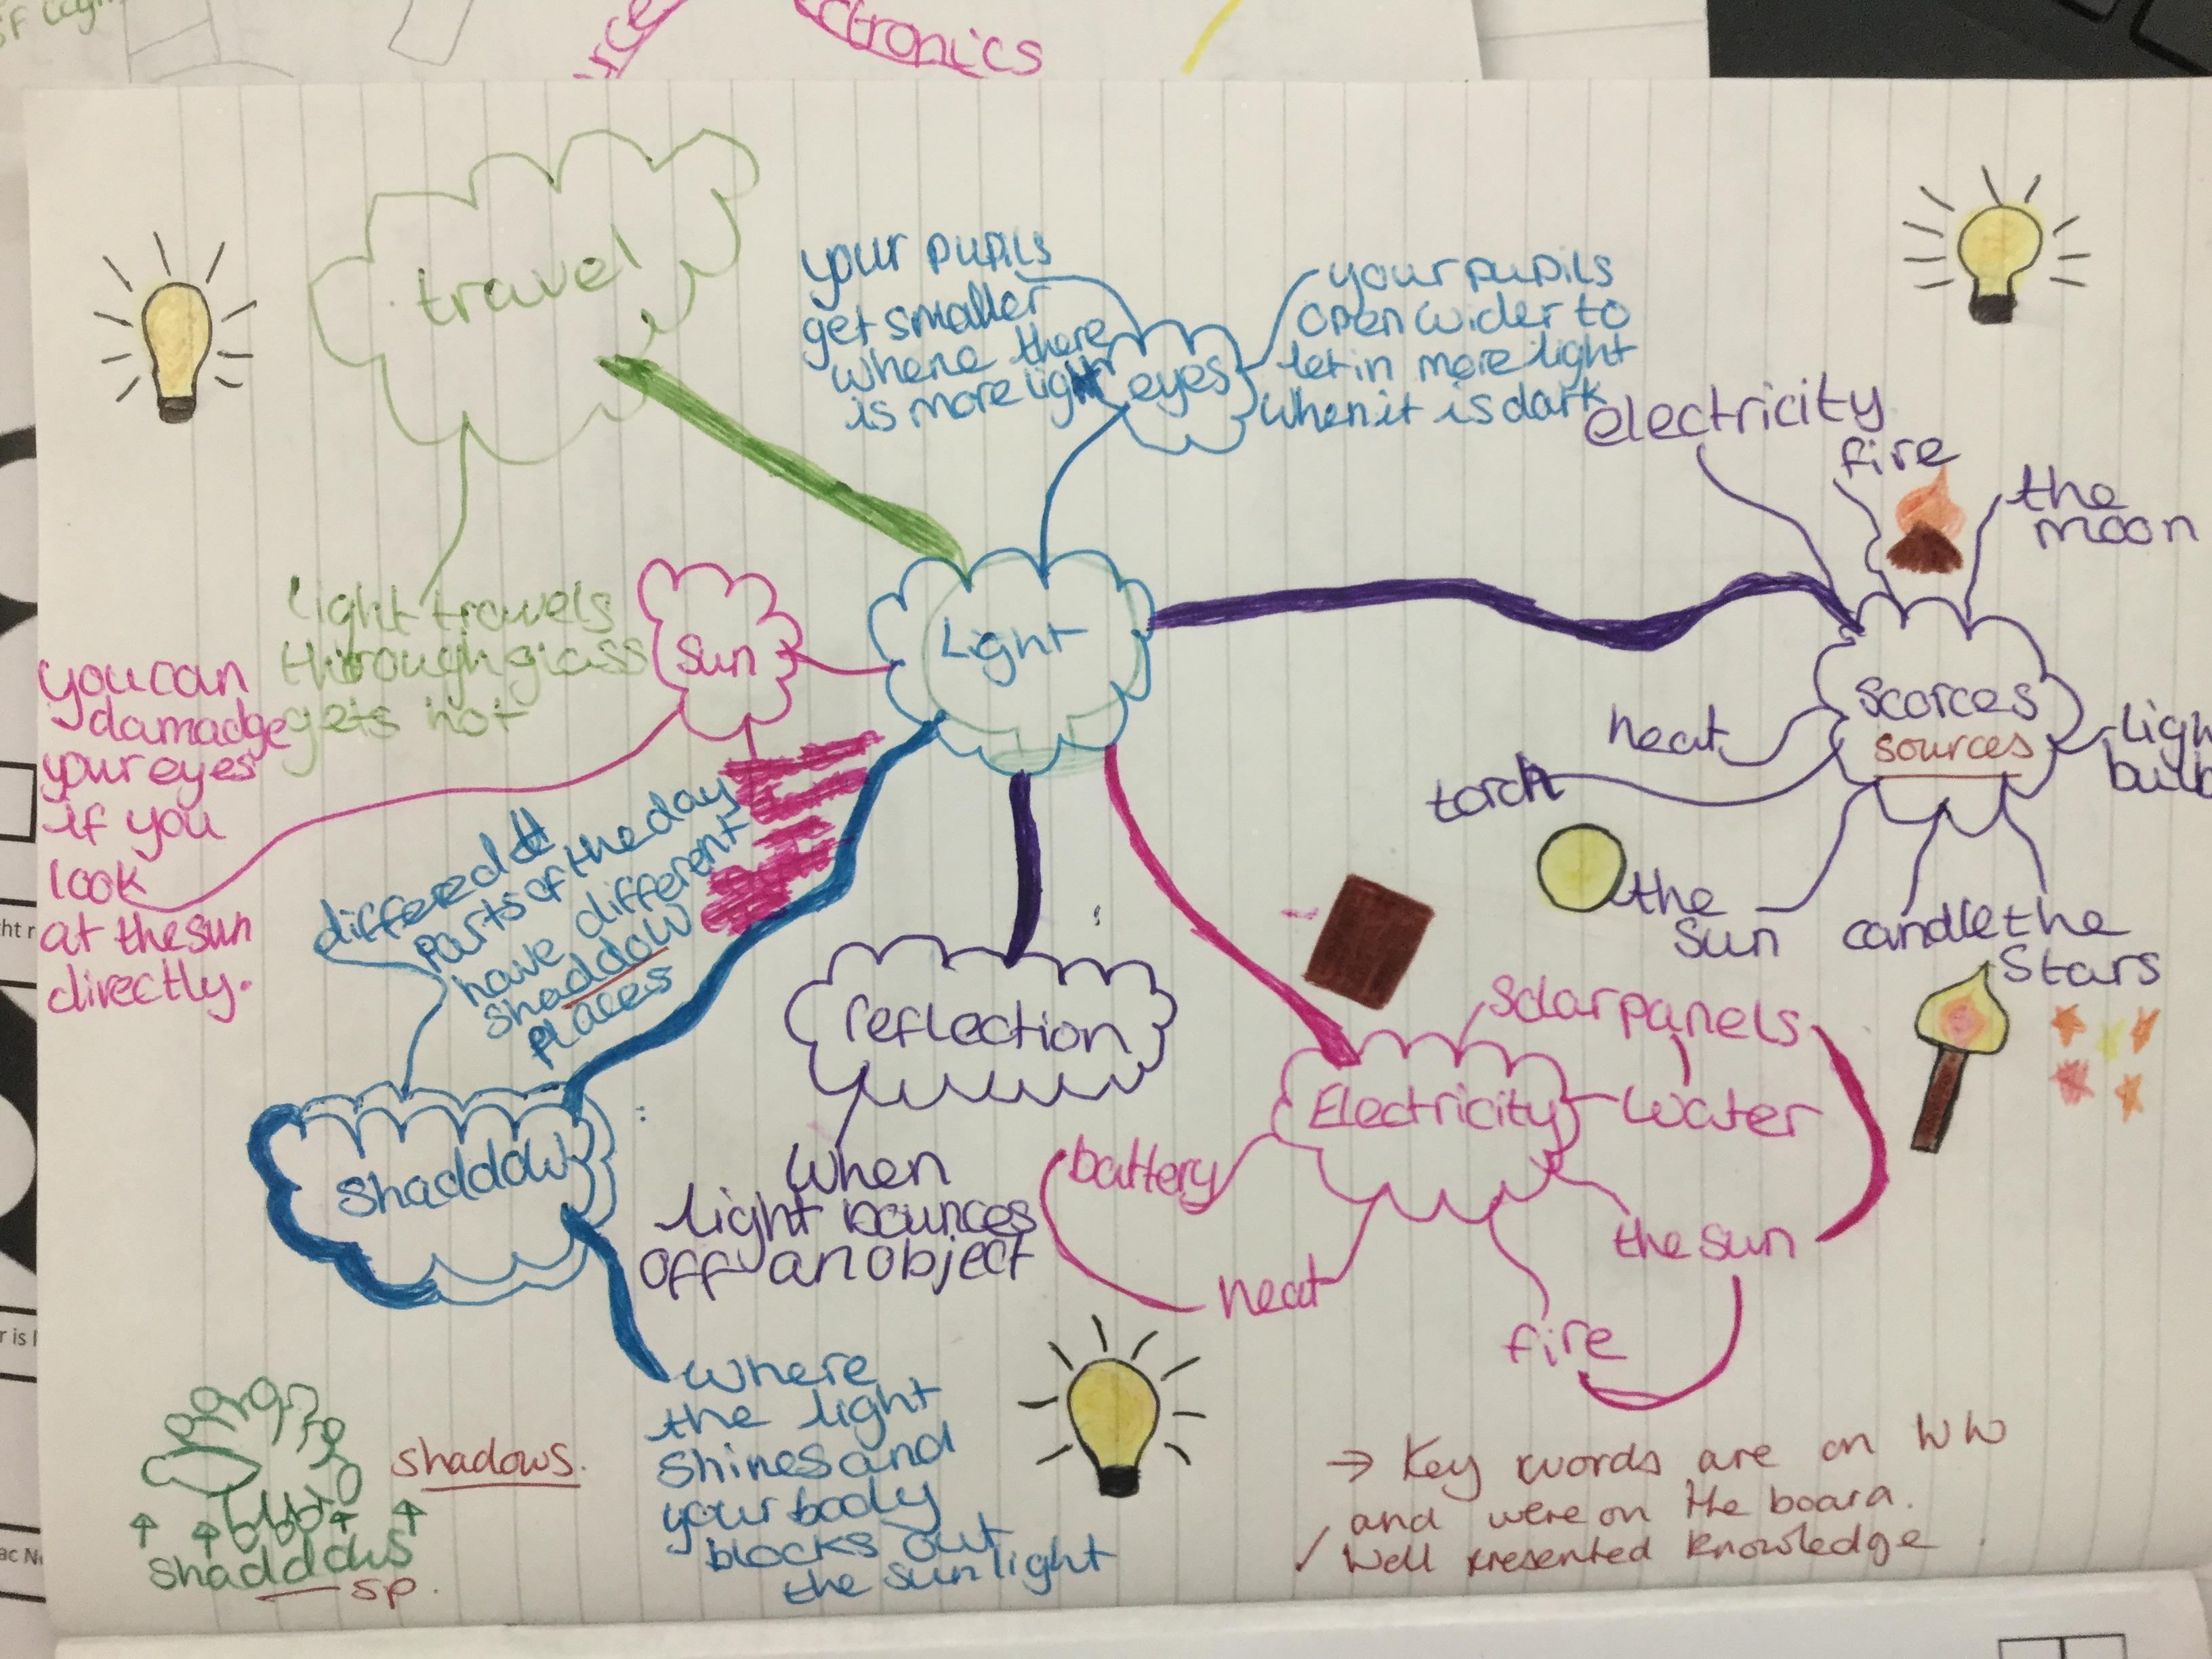 ctronics
travel
light travels
through glass
gets hot
your pupils
get smaller
where there
is more light
eyes
your pupils
open wider to
let in more light
when it is dark
Light
sun
you can
damadge
your eyes
if you
look
at the sun
directly.
electricity
fire
the
moon
scorces
sources
heat
torch
the
sun
candle
the
stars
bulb
different
parts of the day
have different
shaddow
places
shaddow
where
the light
shines and
your body
blocks out
the sun light
reflection
when
light bounces
off an object
Electricity
solar panels
water
the sun
fire
heat
battery
shaddows
sp.
shadows.
→ Key words are on WW
and were on the board.
✓ Well presented knowledge